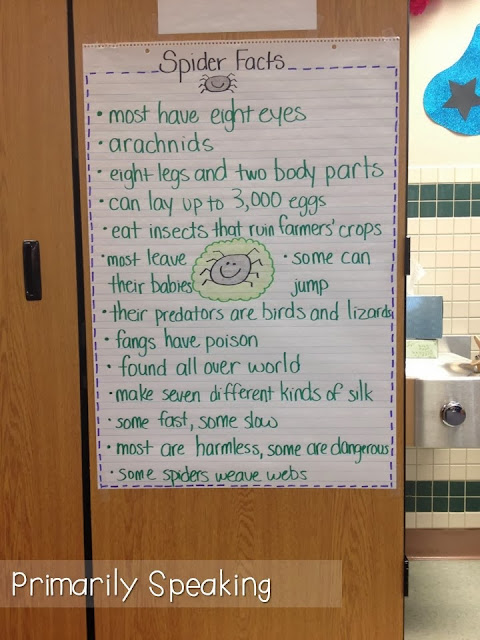 Spider Facts
• most have eight eyes
• arachnids
• eight legs and two body parts
• can lay up to 3,000 eggs
• eat insects that ruin farmers' crops
• most leave their babies
• some can jump
• their predators are birds and lizards
• fangs have poison
• found all over world
• make seven different kinds of silk
• some fast, some slow
• most are harmless, some are dangerous
• some spiders weave webs
Primarily Speaking